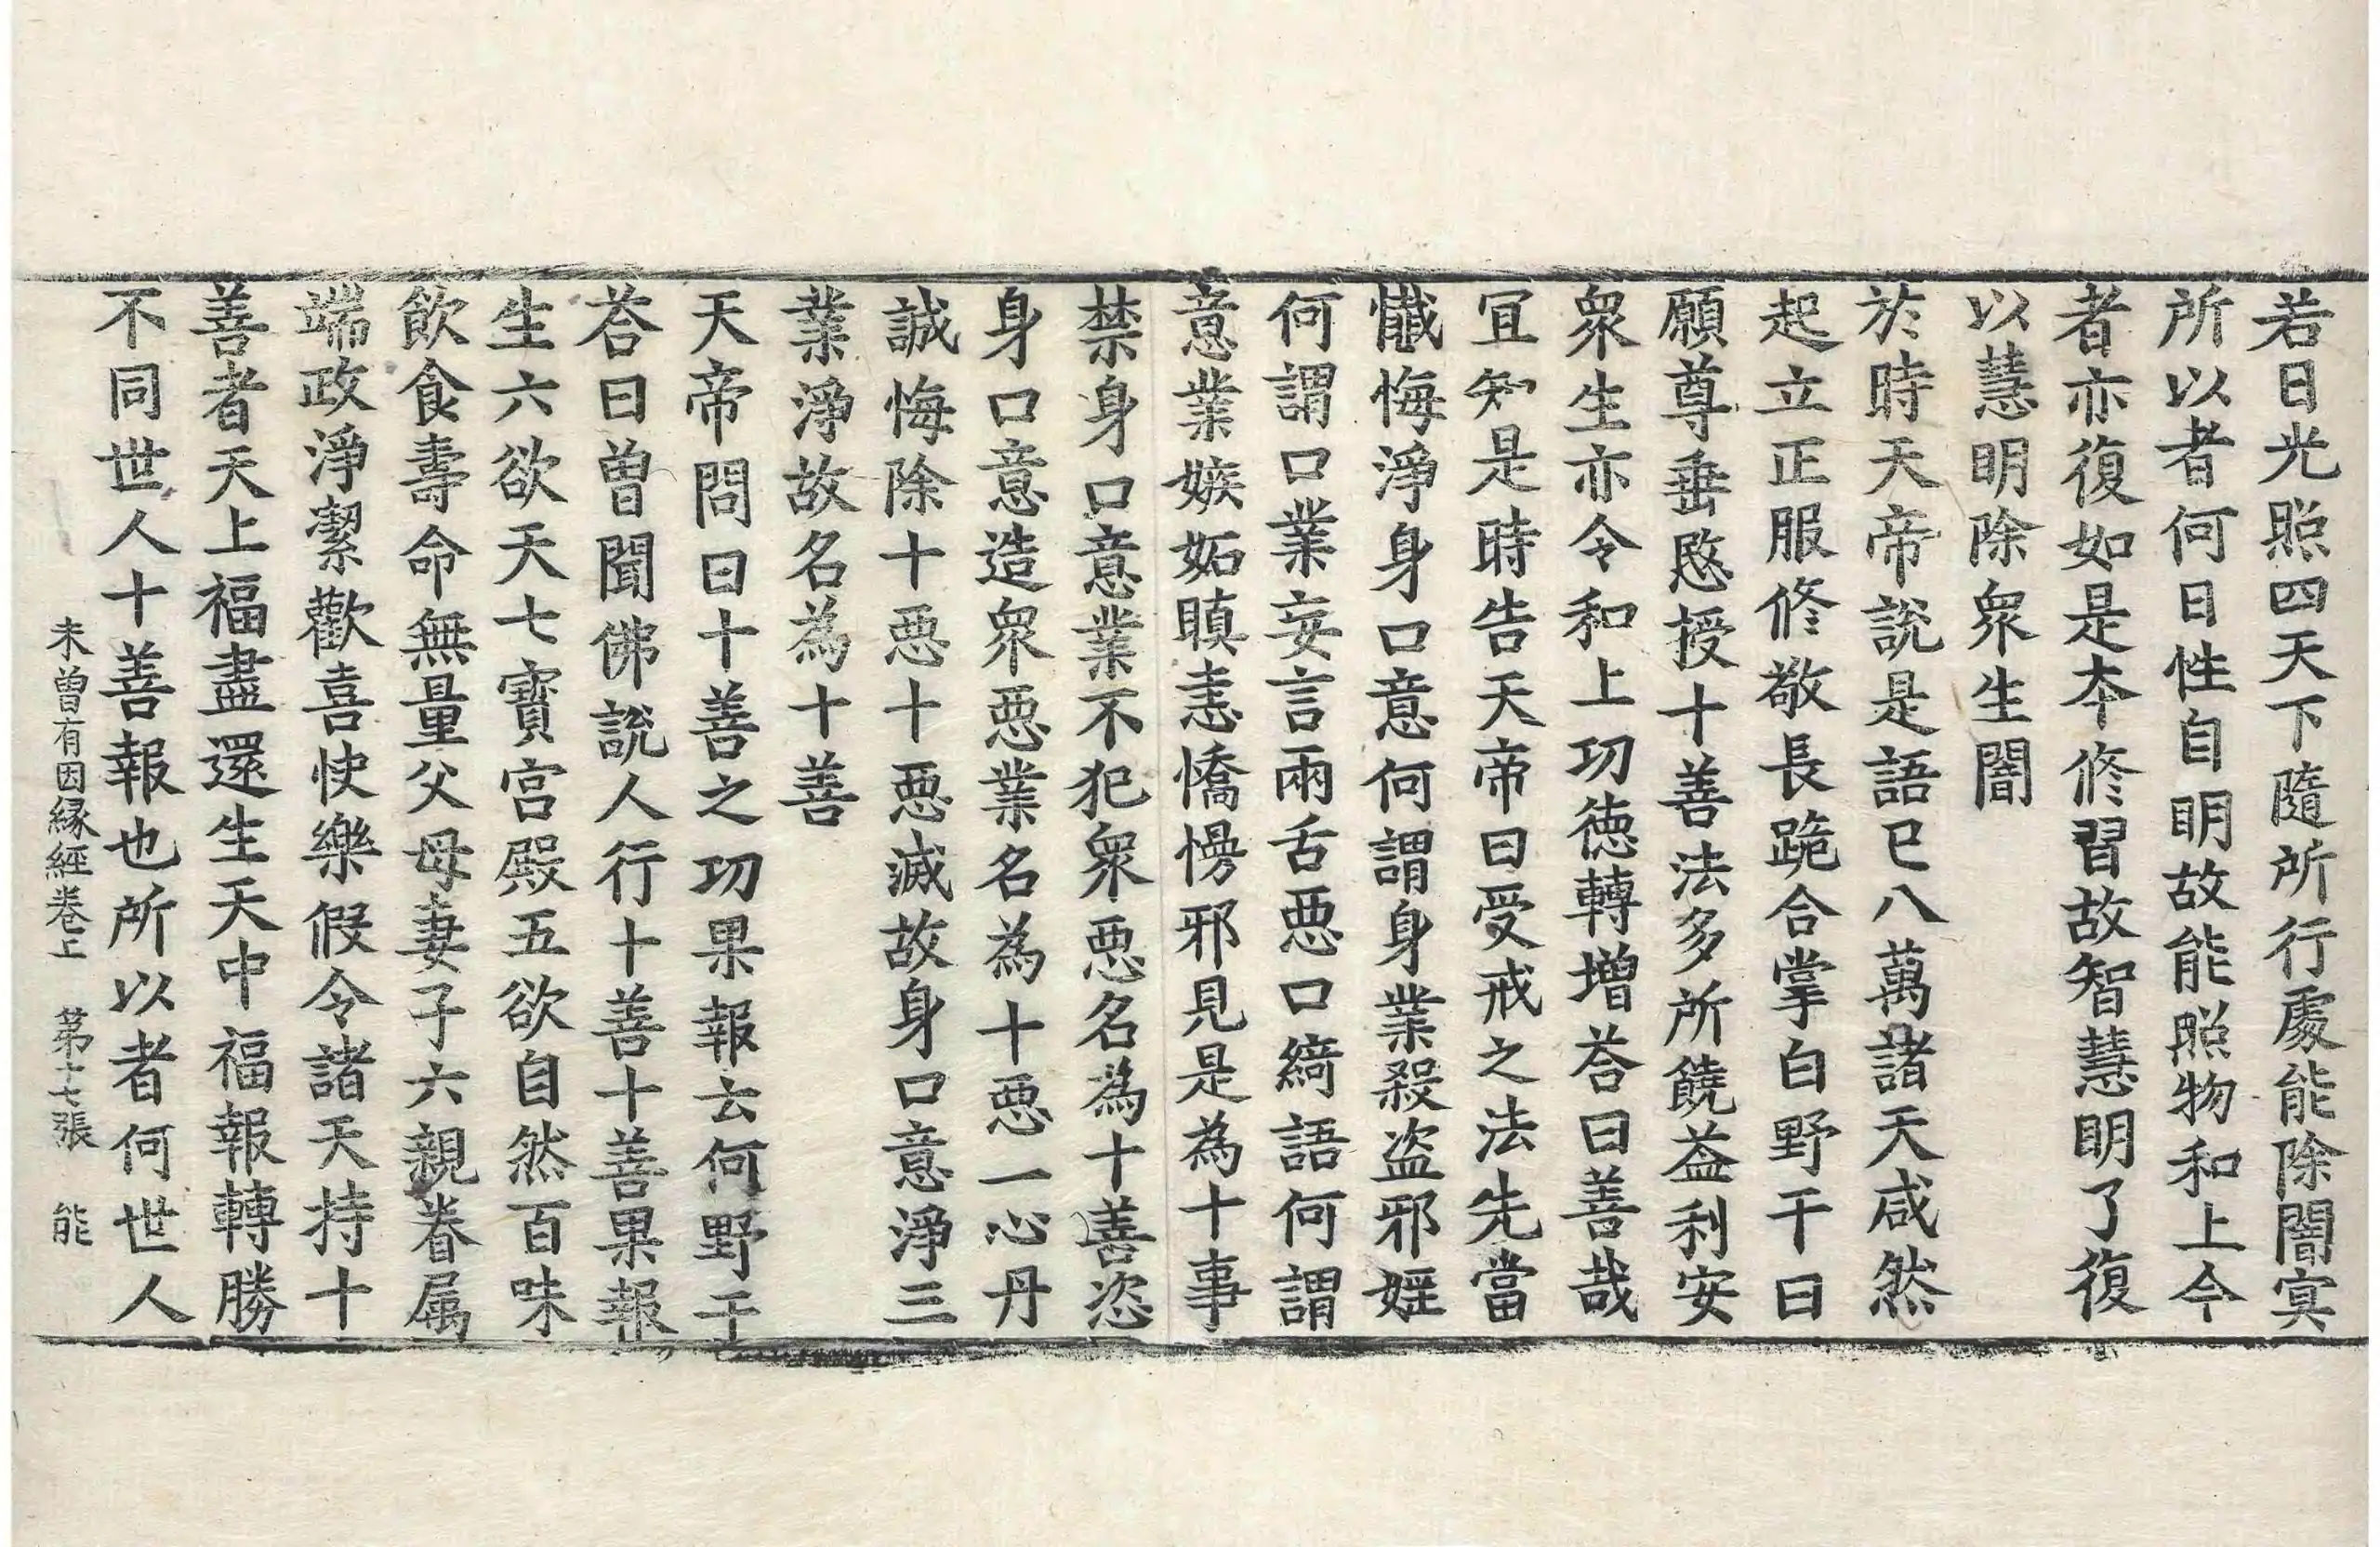 若日光照四天下隨所行處能除闇㝠
所以者何日性自明故能照物和上今
者亦復如是夲修習故智慧明了復
以慧明除衆生闇
於時天帝說是語已八萬諸天咸然
起立正服修敬長跪合掌白野干曰
願尊垂愍授十善法多所饒益利安
衆生亦令和上功德轉增荅曰善哉
宜知是時告天帝曰受戒之法先當
懺悔淨身口意何謂身業殺盜邪婬
何謂口業妄言兩舌惡口綺語何謂
意業嫉妬瞋恚憍慢邪見是為十事
禁身口意業不犯衆惡名為十善恣
身口意造衆惡業名為十惡一心丹
誠悔除十惡十惡滅故身口意淨三
業淨故名為十善
天帝問曰十善之功果報云何野干
荅曰曾聞佛說人行十善十善果報
生六欲天七寶宮殿五欲自然百味
飲食壽命無量父母妻子六親眷属
端政淨潔歡喜快樂假令諸天持十
善者天上福盡還生天中福報轉勝
不同世人十善報也所以者何世人
未曾有因緣經卷上 第十七張 能